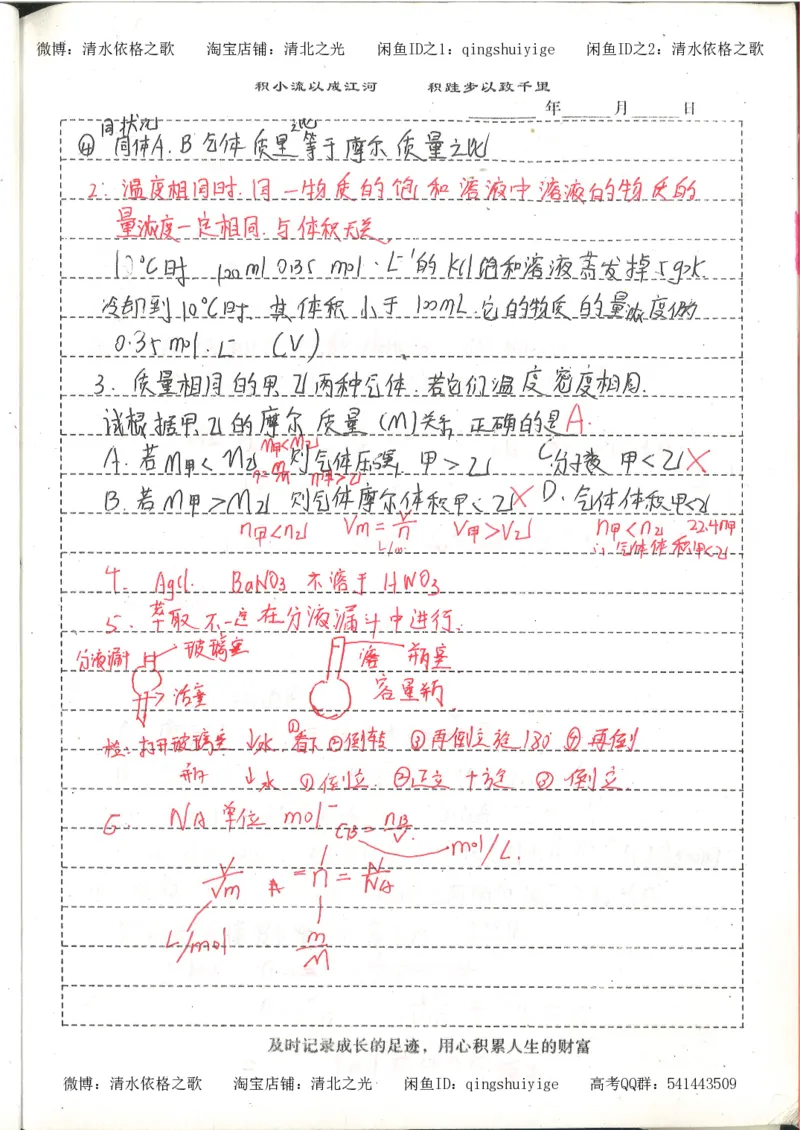 微博：清水依格之歌 淘宝店铺：清北之光 闲鱼ID之1：qingshuiyige 闲鱼ID之2：清水依格之歌
积小流以成江河 积跬步以致千里
年 月 日
同状况 之比
④ 同体A.B气体质量等于摩尔质量之比
2. 温度相同时.同一物质的饱和溶液中溶液的物质的
量浓度一定相同.与体积无关.
10℃时 100ml 0.35 mol·L⁻¹的KCl饱和溶液蒸发掉5g水
冷却到10℃时.其体积小于100mL.它的物质的量浓度仍为
0.35mol·L⁻ (V)
3. 质量相同的甲乙两种气体.若它们温度密度相同.
试根据甲乙的摩尔质量(M)关系,正确的是A.
A. 若M甲<M乙 则气体压强 甲>乙 C.分子数 甲<乙 X
n甲>乙
B. 若M甲>M乙 则气体摩尔体积甲<乙 X D. 气体体积甲<乙
n甲<n乙 Vm=V/n V甲>V乙 n甲<n乙 22.4n甲
L/m ∴气体体积甲<乙
4. AgCl. BaNO3 不溶于HNO3
5. 萃取不一定在分液漏斗中进行.
分液漏斗 玻璃塞 瓶塞
活塞 容量瓶
检:打开玻璃塞 ↓水 ①看下 ②倒转 ③再倒立旋180° ④再倒
↓水 ①倒立 ②正立+旋 ③倒立
6. NA单位 mol⁻ CB=nB/V
mol/L.
V/Vm =n= N/NA
L/mol m/M
及时记录成长的足迹，用心积累人生的财富
微博：清水依格之歌 淘宝店铺：清北之光 闲鱼ID：qingshuiyige 高考QQ群：541443509